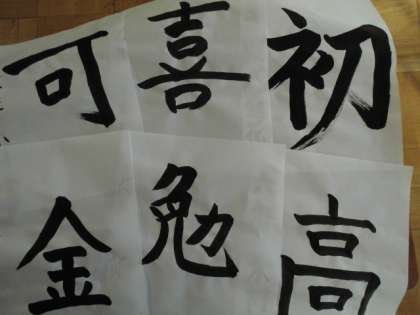 可喜初
金勉高